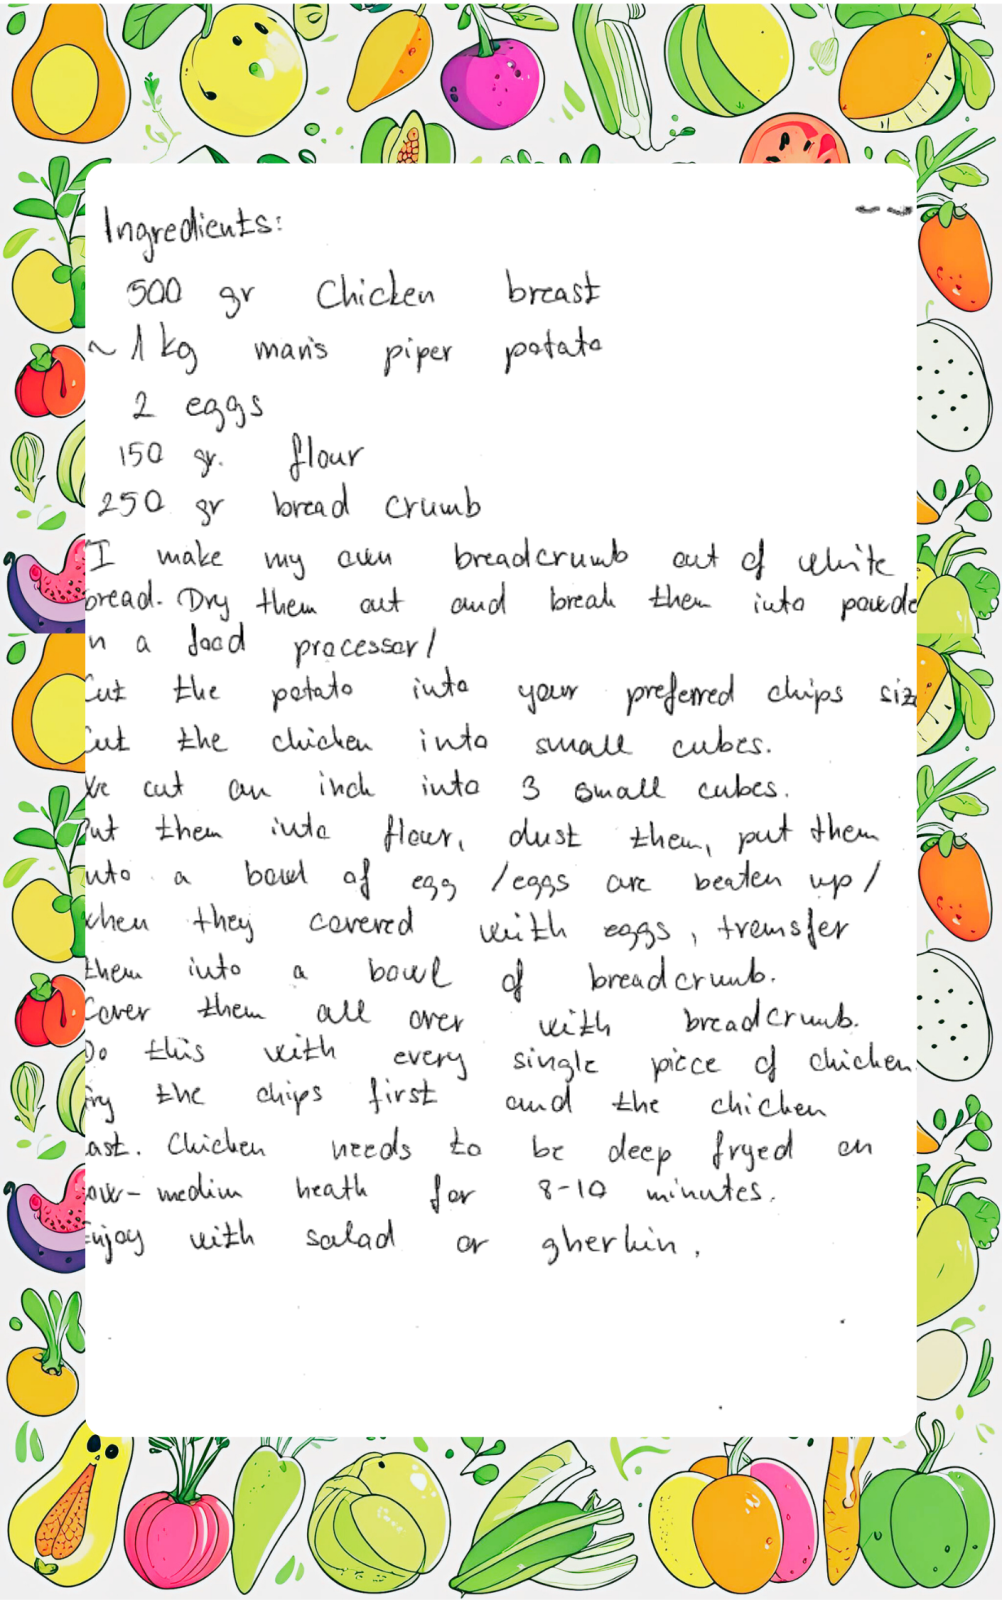 Ingredients:
500 gr Chicken breast
~ 1 kg maris piper potato
2 eggs
150 gr. flour
250 gr bread crumb
I make my own breadcrumb out of white
bread. Dry them out and break them into powde
n a food processor/
Cut the potato into your preferred chips size
Cut the chicken into small cubes.
We cut an inch into 3 small cubes.
Put them into flour, dust them, put them
into a bowl of egg /eggs are beaten up/
when they covered with eggs, transfer
them into a bowl of breadcrumb.
Cover them all over with breadcrumb.
Do this with every single piece of chicken.
Fry the chips first and the chicken
last. Chicken needs to be deep fryed on
low-medium heath for 8-10 minutes.
Enjoy with salad or gherkin.